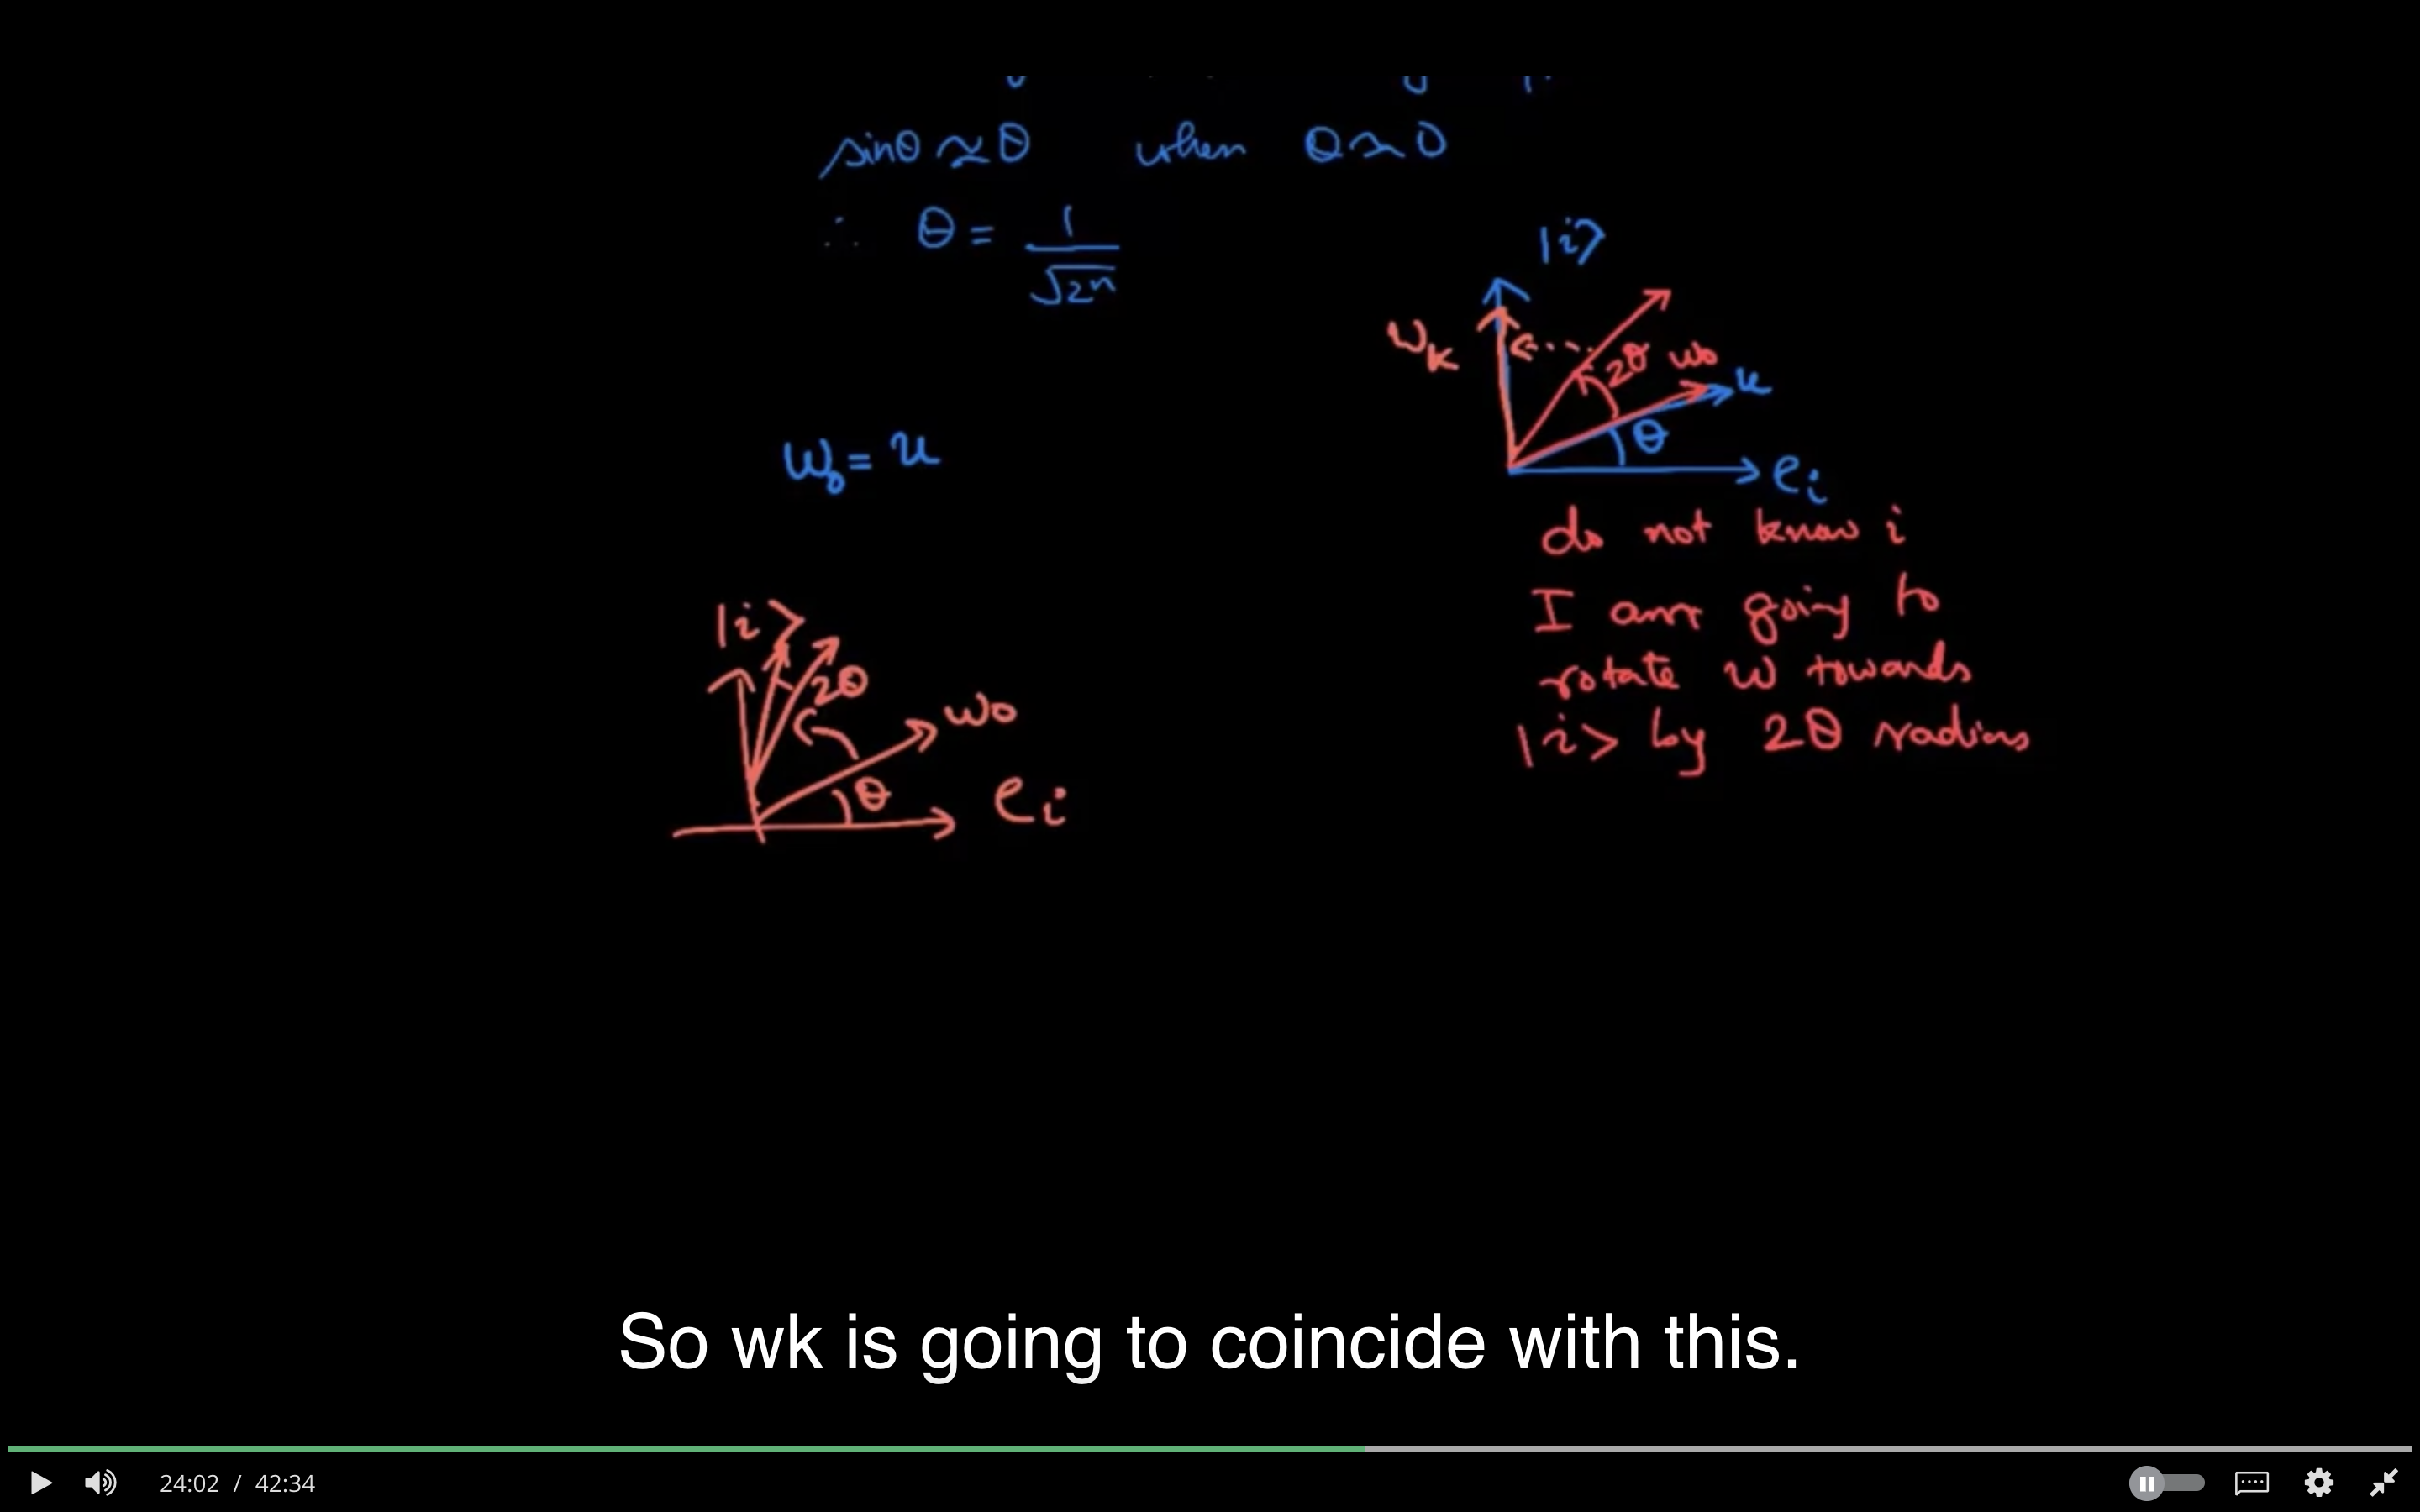 sinθ ≃ θ when θ ≃ 0
∴ θ = 1/√2ⁿ
|i⟩
wk
2θ w₀
u
θ
eᵢ
w₀ = u
do not know i
I am going to
rotate w towards
|i> by 2θ radians
|i⟩
2θ
w₀
θ
eᵢ
So wk is going to coincide with this.
24:02 / 42:34